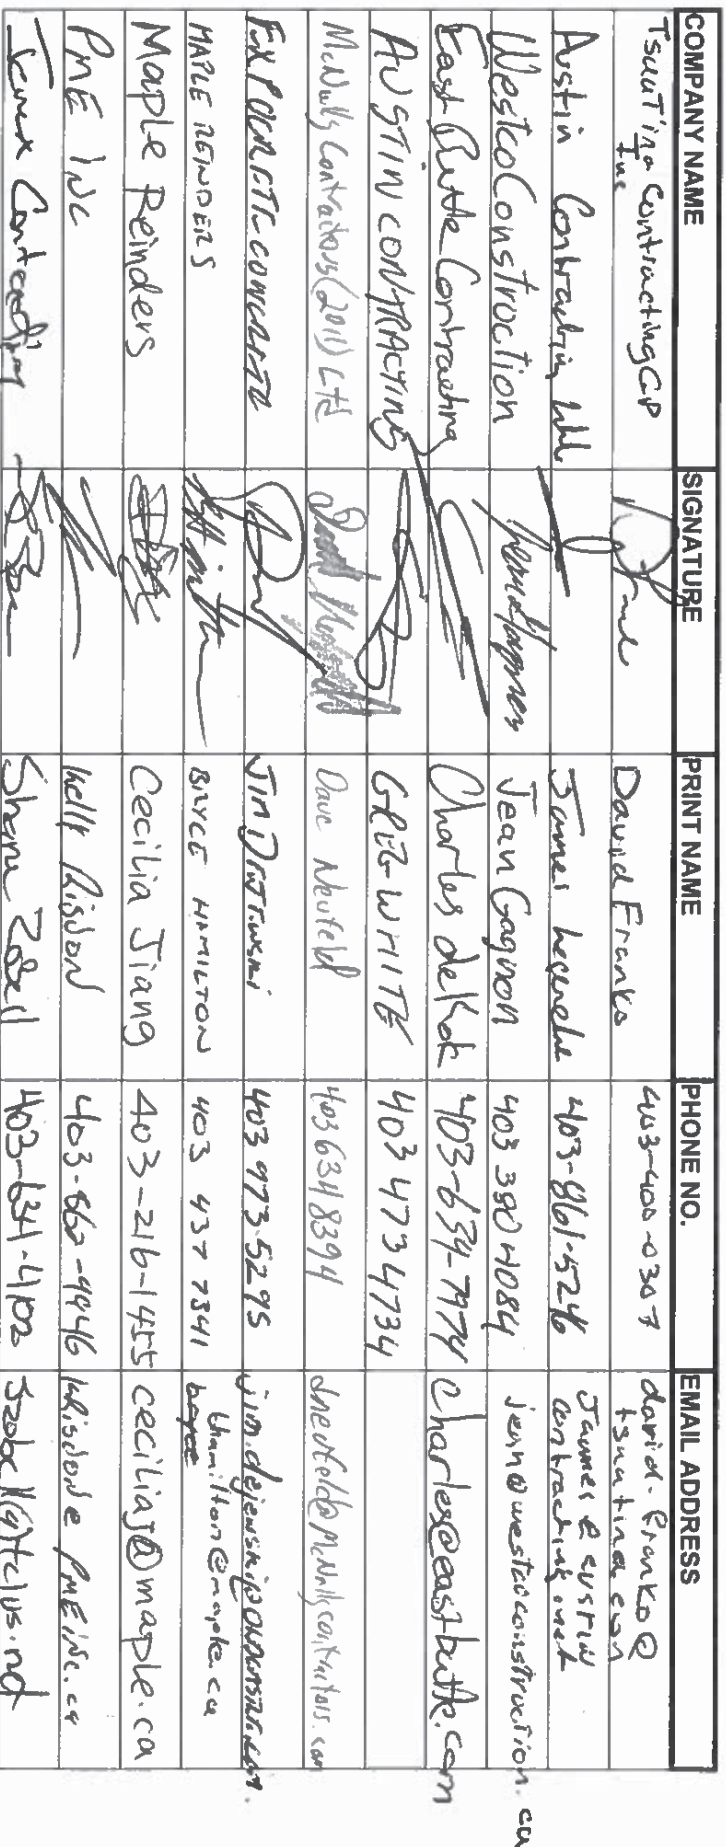 COMPANY NAME SIGNATURE PRINT NAME PHONE NO. EMAIL ADDRESS
TsuuTina Contracting GP Inc David Franks 403-400-0307 david.franks@tsuutina.com
Austin Contracting James 403-861-5246 James@austincontracting.net
Westco Construction Jean Gagnon 403 390 4084 jean@westcoconstruction.ca
East Butte Contracting Charles deKok 403-634-7974 Charles@eastbutte.com
AUSTIN CONTRACTING GREG WHITE 403 473 4734
McNally Contractors (2011) Ltd Dave Neufeld 403 634 8394 dneufeld@McNallycontractors.com
CONCRETE JIM 403 973.5295
MAPLE REINDERS BRYCE HAMILTON 403 437 7341 bhamilton@maple.ca
Maple Reinders Cecilia Jiang 403-216-1455 ceciliaj@maple.ca
PME INC Kelly Risdon KRisdon@PMEinc.ca
Contracting Shane 403-634-4102